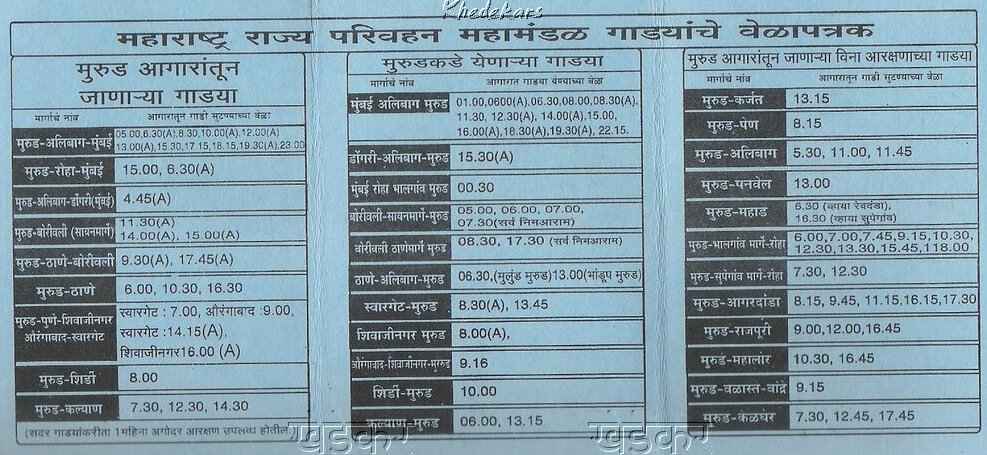 Khedekars
महाराष्ट्र राज्य परिवहन महामंडळ गाडयांचे वेळापत्रक
मुरुड आगारांतून
जाणाऱ्या गाडया
मार्गाचे नांव आगारातून गाडी सुटण्याच्या वेळा
मुरुड-अलिबाग-मुंबई 05.00,6.30(A),8.30,10.00(A),12.00(A)
13.00(A),15.30,17.15,18.15,19.30(A),23.00
मुरुड-रोहा-मुंबई 15.00, 6.30(A)
मुरुड-अलिबाग-डोंगरी(मुंबई) 4.45(A)
मुरुड-बोरीवली (सावनमार्गे) 11.30(A)
14.00(A), 15.00(A)
मुरुड-ठाणे-बोरीवली 9.30(A), 17.45(A)
मुरुड-ठाणे 6.00, 10.30, 16.30
मुरुड-पुणे-शिवाजीनगर स्वारगेट : 7.00, औरंगाबाद :9.00,
औरंगाबाद-स्वारगेट स्वारगेट :14.15(A),
शिवाजीनगर16.00 (A)
मुरुड-शिर्डी 8.00
मुरुड-कल्याण 7.30, 12.30, 14.30
(सदर गाडयांकरीता 1महिना अगोदर आरक्षण उपलब्ध होतील
मुरुडकडे येणाऱ्या गाडया
मार्गाचे नांव आगारात गाडया येण्याच्या वेळा
मुंबई अलिबाग मुरुड 01.00,0600(A),06.30,08.00,08.30(A),
11.30, 12.30(A), 14.00(A),15.00,
16.00(A),18.30(A),19.30(A), 22.15.
डोंगरी-अलिबाग-मुरुड 15.30(A)
मुंबई रोहा भालगांव मुरुड 00.30
बोरीवली-सावनमार्गे-मुरुड 05.00, 06.00, 07.00,
07.30(सर्व निमआराम)
बोरीवली ठाणेमार्गे मुरुड 08.30, 17.30 (सर्व निमआराम)
ठाणे-अलिबाग-मुरुड 06.30,(मुलुंड मुरुड)13.00(भांडूप मुरुड)
स्वारगेट-मुरुड 8.30(A), 13.45
शिवाजीनगर मुरुड 8.00(A),
औरंगाबाद-शिवाजीनगर-मुरुड 9.16
शिर्डी-मुरुड 10.00
कल्याण-मुरुड 06.00, 13.15
मुरुड आगारांतून जाणाऱ्या विना आरक्षणाच्या गाडया
मार्गाचे नांव आगारातून गाडी सुटण्याच्या वेळा
मुरुड-कर्जत 13.15
मुरुड-पेण 8.15
मुरुड-अलिबाग 5.30, 11.00, 11.45
मुरुड-पनवेल 13.00
मुरुड-महाड 6.30 (व्हाया रेवदंडा)
16.30 (व्हाया सुपेगांव)
मुरुड-भालगांव मार्गे-रोहा 6.00,7.00,7.45,9.15,10.30,
12.30,13.30,15.45,118.00
मुरुड-सुपेगांव मार्गे-रोहा 7.30, 12.30
मुरुड-आगरदांडा 8.15, 9.45, 11.15,16.15,17.30
मुरुड-राजपूरी 9.00,12.00,16.45
मुरुड-महालोर 10.30, 16.45
मुरुड-वळास्त-वांद्रे 9.15
मुरुड-केळघर 7.30, 12.45, 17.45
खेडेकर खेडेकर